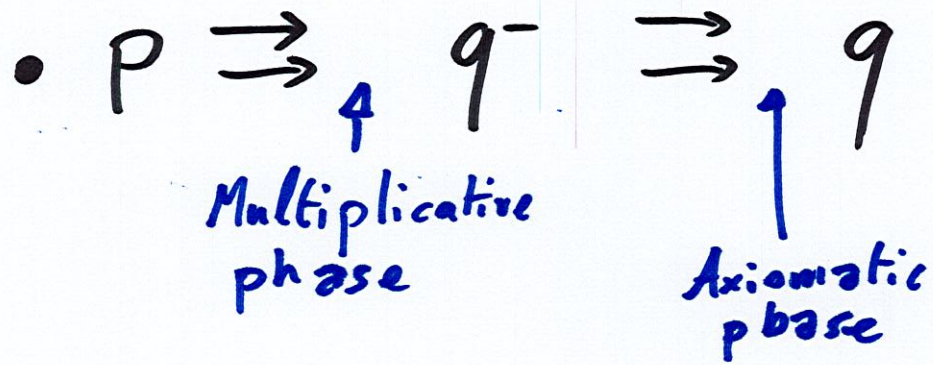 • p ⇉ q⁻ ⇉ q
Multiplicative
phase
Axiomatic
phase